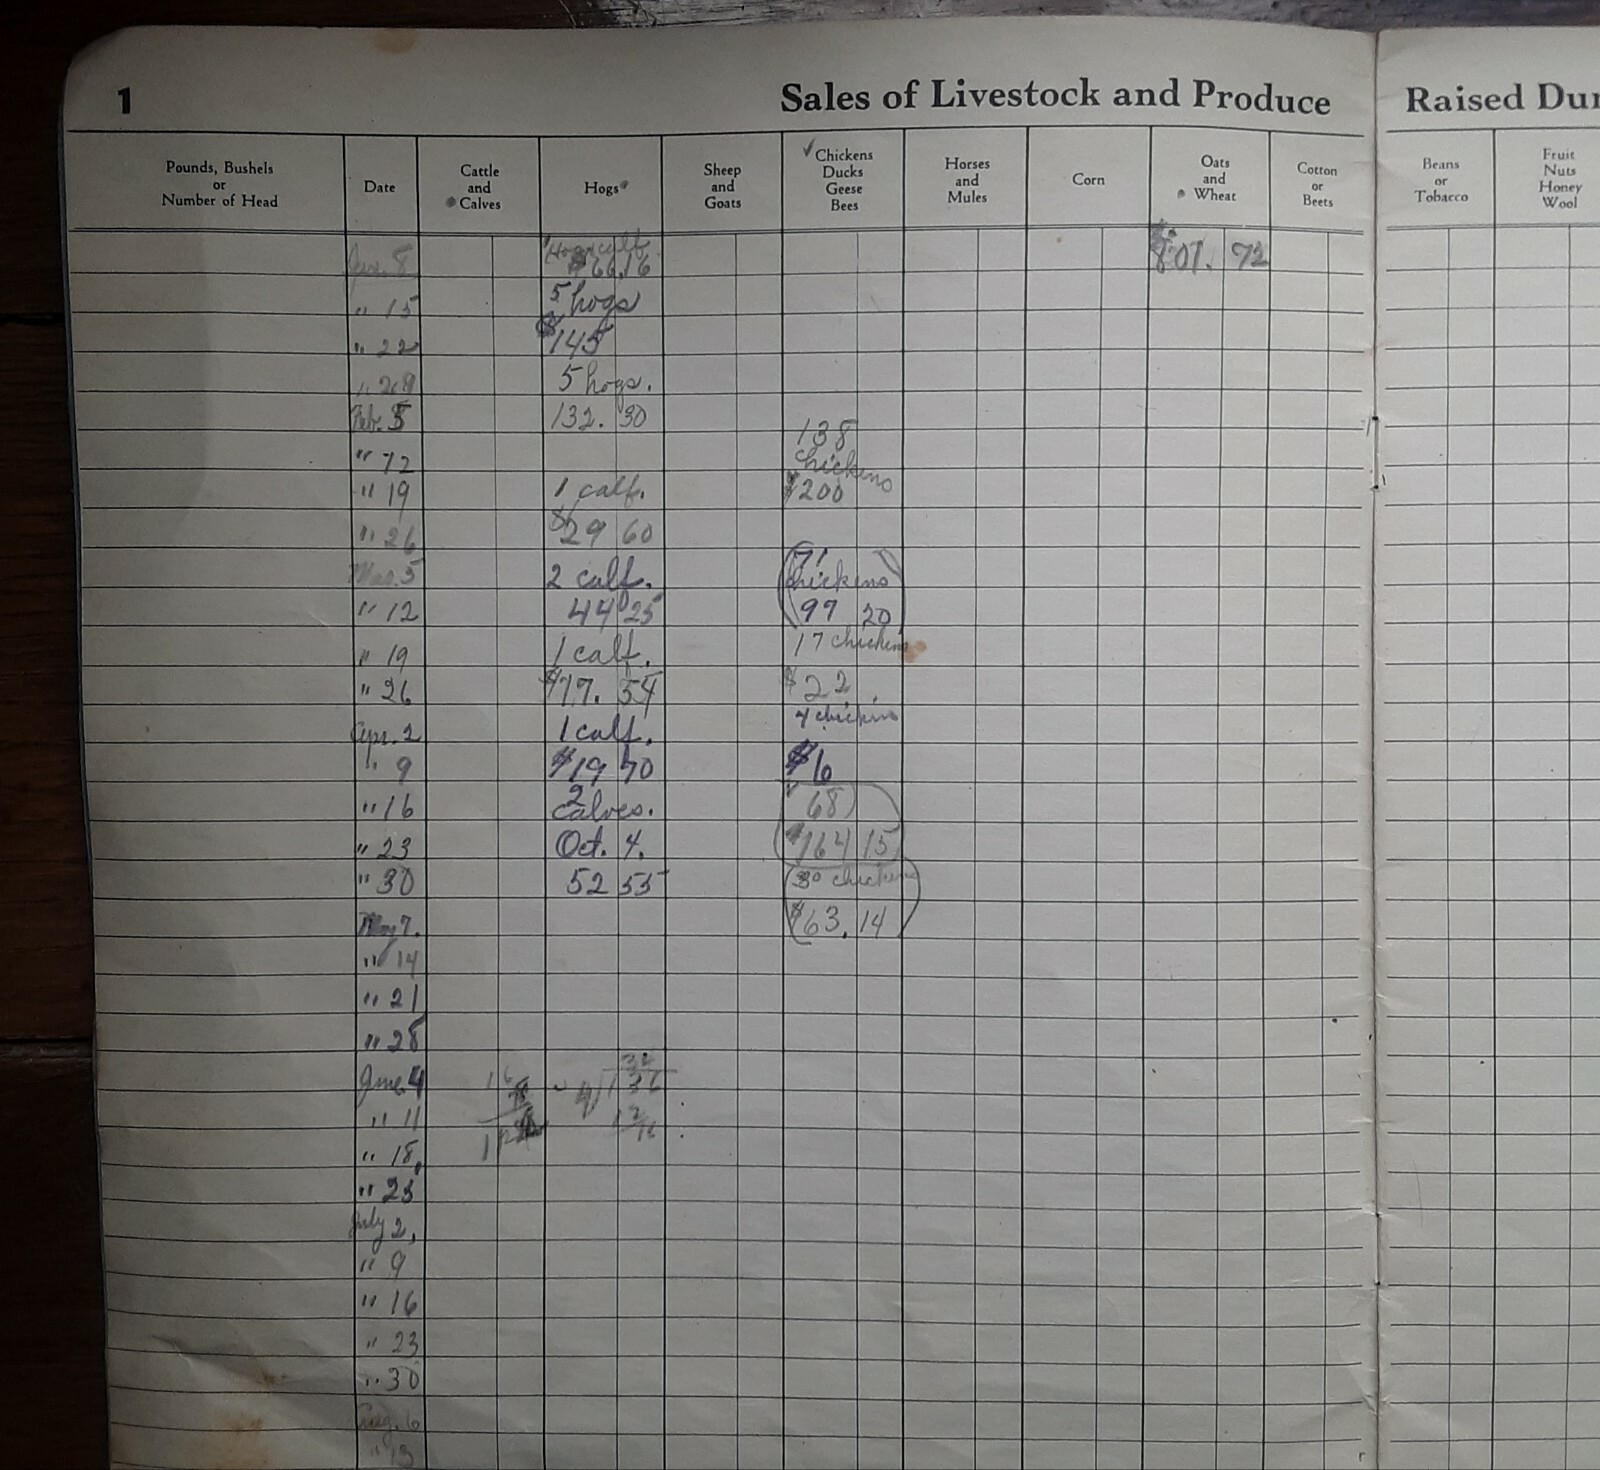 1 Sales of Livestock and Produce Raised Dur
Pounds, Bushels or Number of Head
Date
Cattle and Calves
Hogs
Sheep and Goats
✓ Chickens Ducks Geese Bees
Horses and Mules
Corn
Oats and Wheat
Cotton or Beets
Beans or Tobacco
Fruit Nuts Honey Wool
8 calf
801. 72
" 15 5 hogs
" 22 $145
" 29 5 hogs.
Feb. 5 132. 30 138
" 12 chickens
" 19 1 calf. $200
" 26 $29 60
Mar. 5 2 calf. 71 chickens
" 12 44 25 99 20
" 19 1 calf. 17 chickens
" 26 54 $22
Apr. 2 1 calf. chickin
" 9 $19 70 $6
" 16 2 calves. 68
" 23 Oct. 4. $164 15
" 30 52 55 30 chickens
May 7. $63. 14
" 14
" 21
" 28
June 4
" 11
" 18
" 25
July 2,
" 9
" 16
" 23
" 30
Aug. 6
" 13